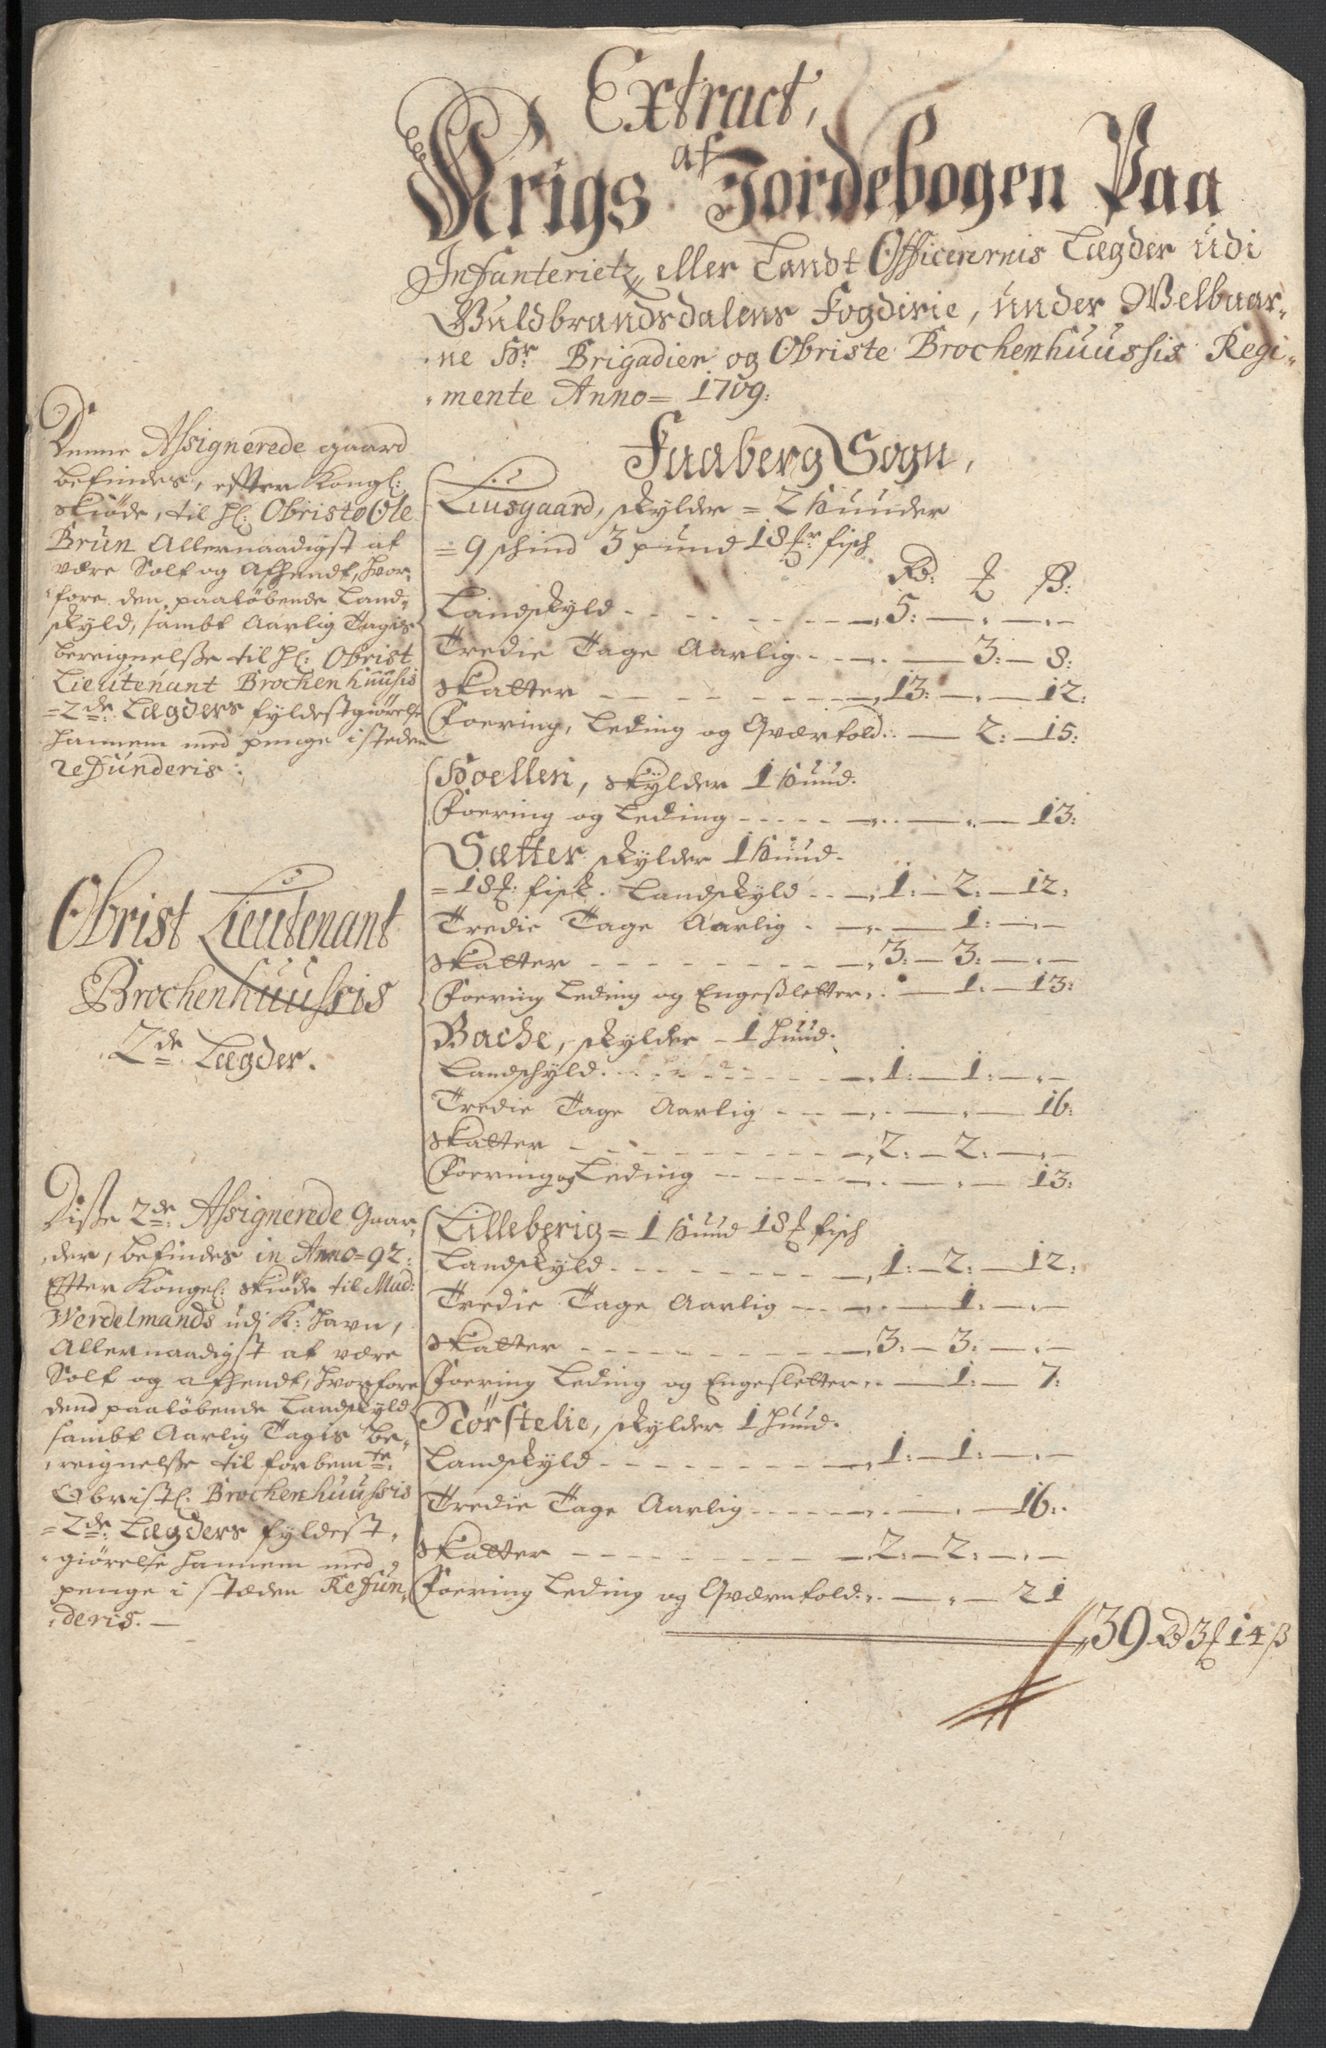 Extract,
af
Krigs Jordebogen Paa
Infanteriets eller Landt Officerernis Lægder udi
Guldbrandsdalens Fogderie, under Welbaar-
ne Hr Brigadier og Obriste Brochenhuussis Regi-
mente Anno = 1709.
Faaberg Sogn,
Denne Assignerede gaard
befindes, efter Kongl:
Skiöde, til Hl: Obriste Ole
Brun Allernaadigst at
være Solt og Afhendt, hvor-
fore den paalöbende Land-
skyld, sambt Aarlig Tages
bereignelsse til Hl: Obrist
Lieutenant Brochenhuusis
=2de Lægders fyldestgiörelse
hannem med penge i steden
refunderis:
Obrist Lieutenant
Brochenhuussis
2de Lægder.
Disse 2de: Assignerede Gaar-
der, befindes in Anno = 92:
Efter Kongel: Skiöde til Mad:
Werdelmands udj K: Havn,
Allernaadigst at være
Solt og afhendt, hvorfore
dend paalöbende Landskyld
sambt Aarlig Tages be-
reignelsse til forbemte:
Obristl: Brochenhuussis
=2de: Lægders fyldest-
giörelse hannem med
penge i stæden Refun-
deris. —
Liusgaard, skylder = 2 Huuder
= 9 schind 3 pund 18 fisch
Rd: ß:
Landskyld - - - 5: — „ — „ —
Tredie Tage Aarlig - - - 3: — 8:
Skatter - - - 13: — „ — 12:
Foering, Leding og Qværnfold. — 2: — 15:
Hoellen, skylder 1 Huud.
Foering og Leding - - - „ — „ — 13:
Sætter skylder 1 Huud.
= 18 fisk. Landskyld - - 1: — 2: — 12:
Tredie Tage Aarlig - — „ — 1: — „ —
Skatter - - - 3: — 3: — „ —
Foering Leding og Engesletter „ — 1: — 13:
Bache, skylder - 1 Huud.
Landschyld - - - 1: — 1: — „ —
Tredie Tage Aarlig - - - „ — „ — 16:
Skatter - - - 2: — 2: — „ —
Foering og Leding - - - „ — „ — 13:
Lilleberig = 1 Huud 18 fisch
Landskyld - - - 1: — 2: — 12:
Tredie Tage Aarlig - - - „ — 1: — „ —
Skatter - - - 3: — 3: — „ —
Foering Leding og Engesletter „ — 1: — 7:
Nörstelie, skylder 1 Huud.
Landskyld - - - 1: — 1: — „ —
Tredie Tage Aarlig - - - „ — „ — 16:
Skatter - - - 2: — 2: — „ —
Foering Leding og Qværnfold: „ — „ — 21
39 Rd 3 14 ß